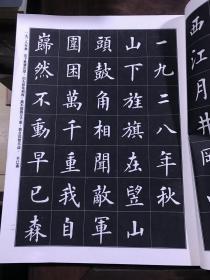 西江月井岡
一九二八年秋
山下旌旗在望山
頭鼓角相聞敵軍
圍困萬千重我自
巋然不動早已森